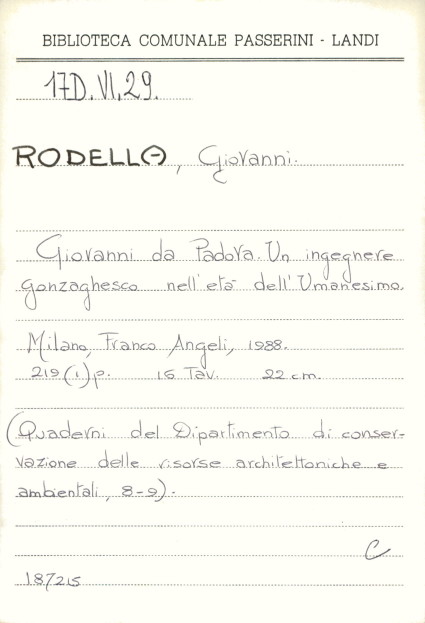 BIBLIOTECA COMUNALE PASSERINI - LANDI
17D.VI.29.
RODELLA, Giovanni.
Giovanni da Padova. Un ingegnere
gonzaghesco nell'età dell'Umanesimo.
Milano, Franco Angeli, 1988.
219(1)p. 16 Tav. 22 cm.
(Quaderni del Dipartimento di conser-
vazione delle risorse architettoniche e
ambientali, 8-9).
C
187215